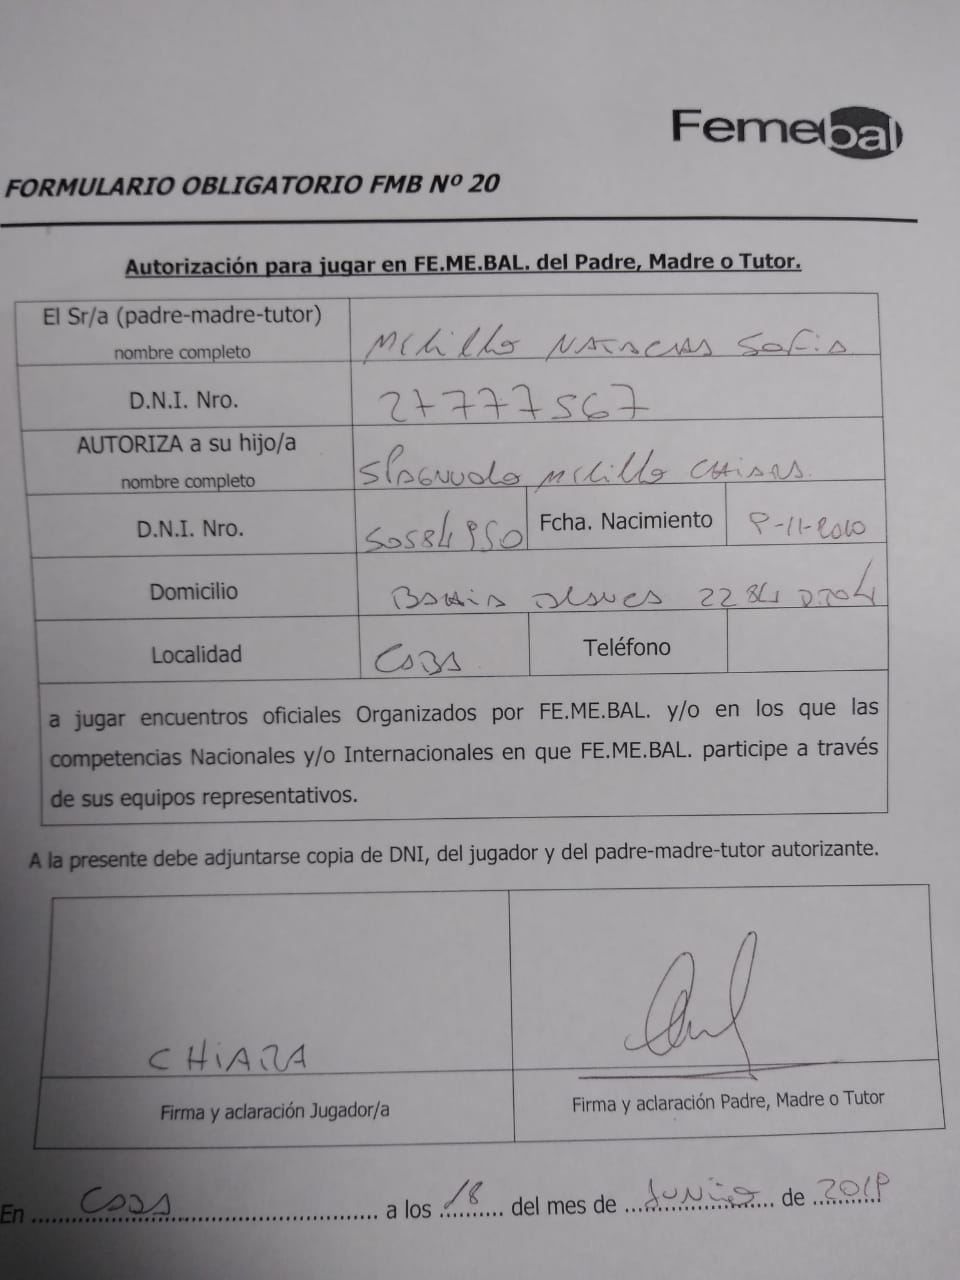 Femebal
FORMULARIO OBLIGATORIO FMB Nº 20
Autorización para jugar en FE.ME.BAL. del Padre, Madre o Tutor.
El Sr/a (padre-madre-tutor)
nombre completo
Melillo Sofia
D.N.I. Nro. 27777567
AUTORIZA a su hijo/a
nombre completo
Spagnuolo Melillo Chiara.
D.N.I. Nro. 50584950 Fcha. Nacimiento 9-11-2010
Domicilio Bahia 2284
Localidad CABA Teléfono
a jugar encuentros oficiales Organizados por FE.ME.BAL. y/o en los que las
competencias Nacionales y/o Internacionales en que FE.ME.BAL. participe a través
de sus equipos representativos.
A la presente debe adjuntarse copia de DNI, del jugador y del padre-madre-tutor autorizante.
CHIARA
Firma y aclaración Jugador/a Firma y aclaración Padre, Madre o Tutor
En CABA a los 18 del mes de Junio de 2019